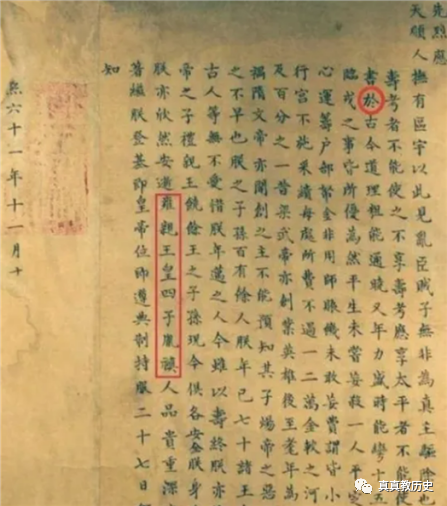 先烈應
天順人撫有區宇以此見亂臣賊子無非為真主驅除也
壽考者不能使之不享壽考應享太平者不能使
書於古今道理粗能通曉又年力盛時能彎十五
臨戎之事皆所優為然平生未嘗妄殺一人平定
心運籌戶部帑金非用師賑饑未敢妄費謂皆小
行宮不施采繢每處所費不過一二萬金較之河
及百分之一昔梁武帝亦創業英雄後至耄年為
禍隋文帝亦開創之主不能預知其子煬帝之惡
之不早也朕之子孫百有餘人朕年已七十諸王
古人等無不愛惜朕年邁之人今雖以壽終朕亦
帝之子禮親王饒餘王之子孫現今俱各安全朕身
朕亦欣然安逝雍親王皇四子胤禛人品貴重深
著繼朕登基即皇帝位即遵典制持服二十七日
知
熙六十一年十一月十
真真教历史